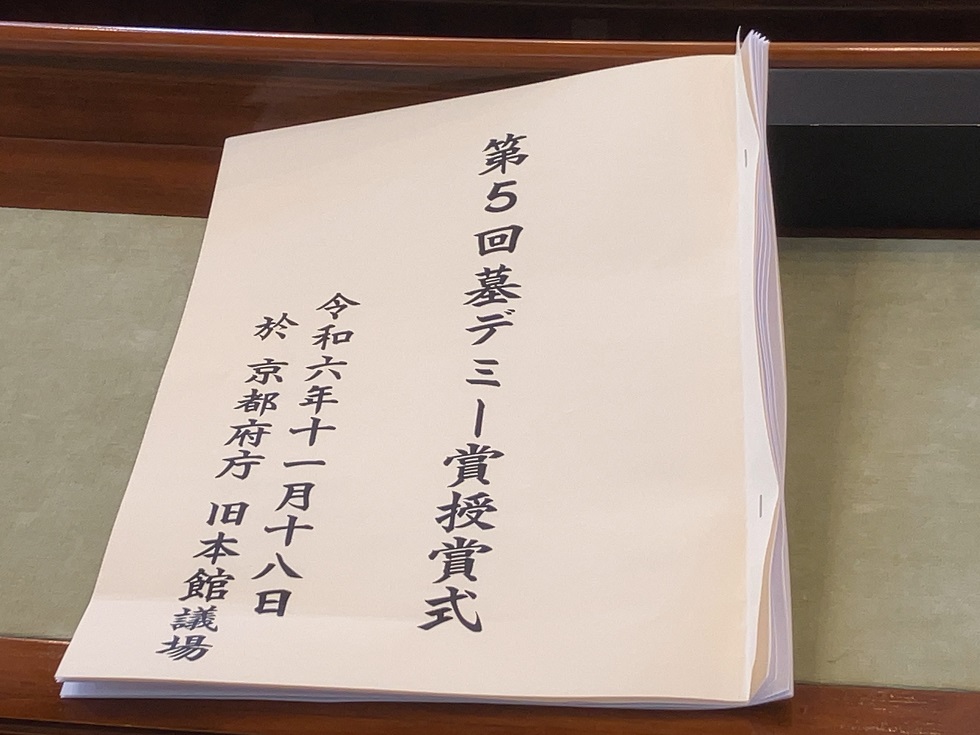 第5回墓デミー賞授賞式
令和六年十一月十八日
於 京都府庁 旧本館議場